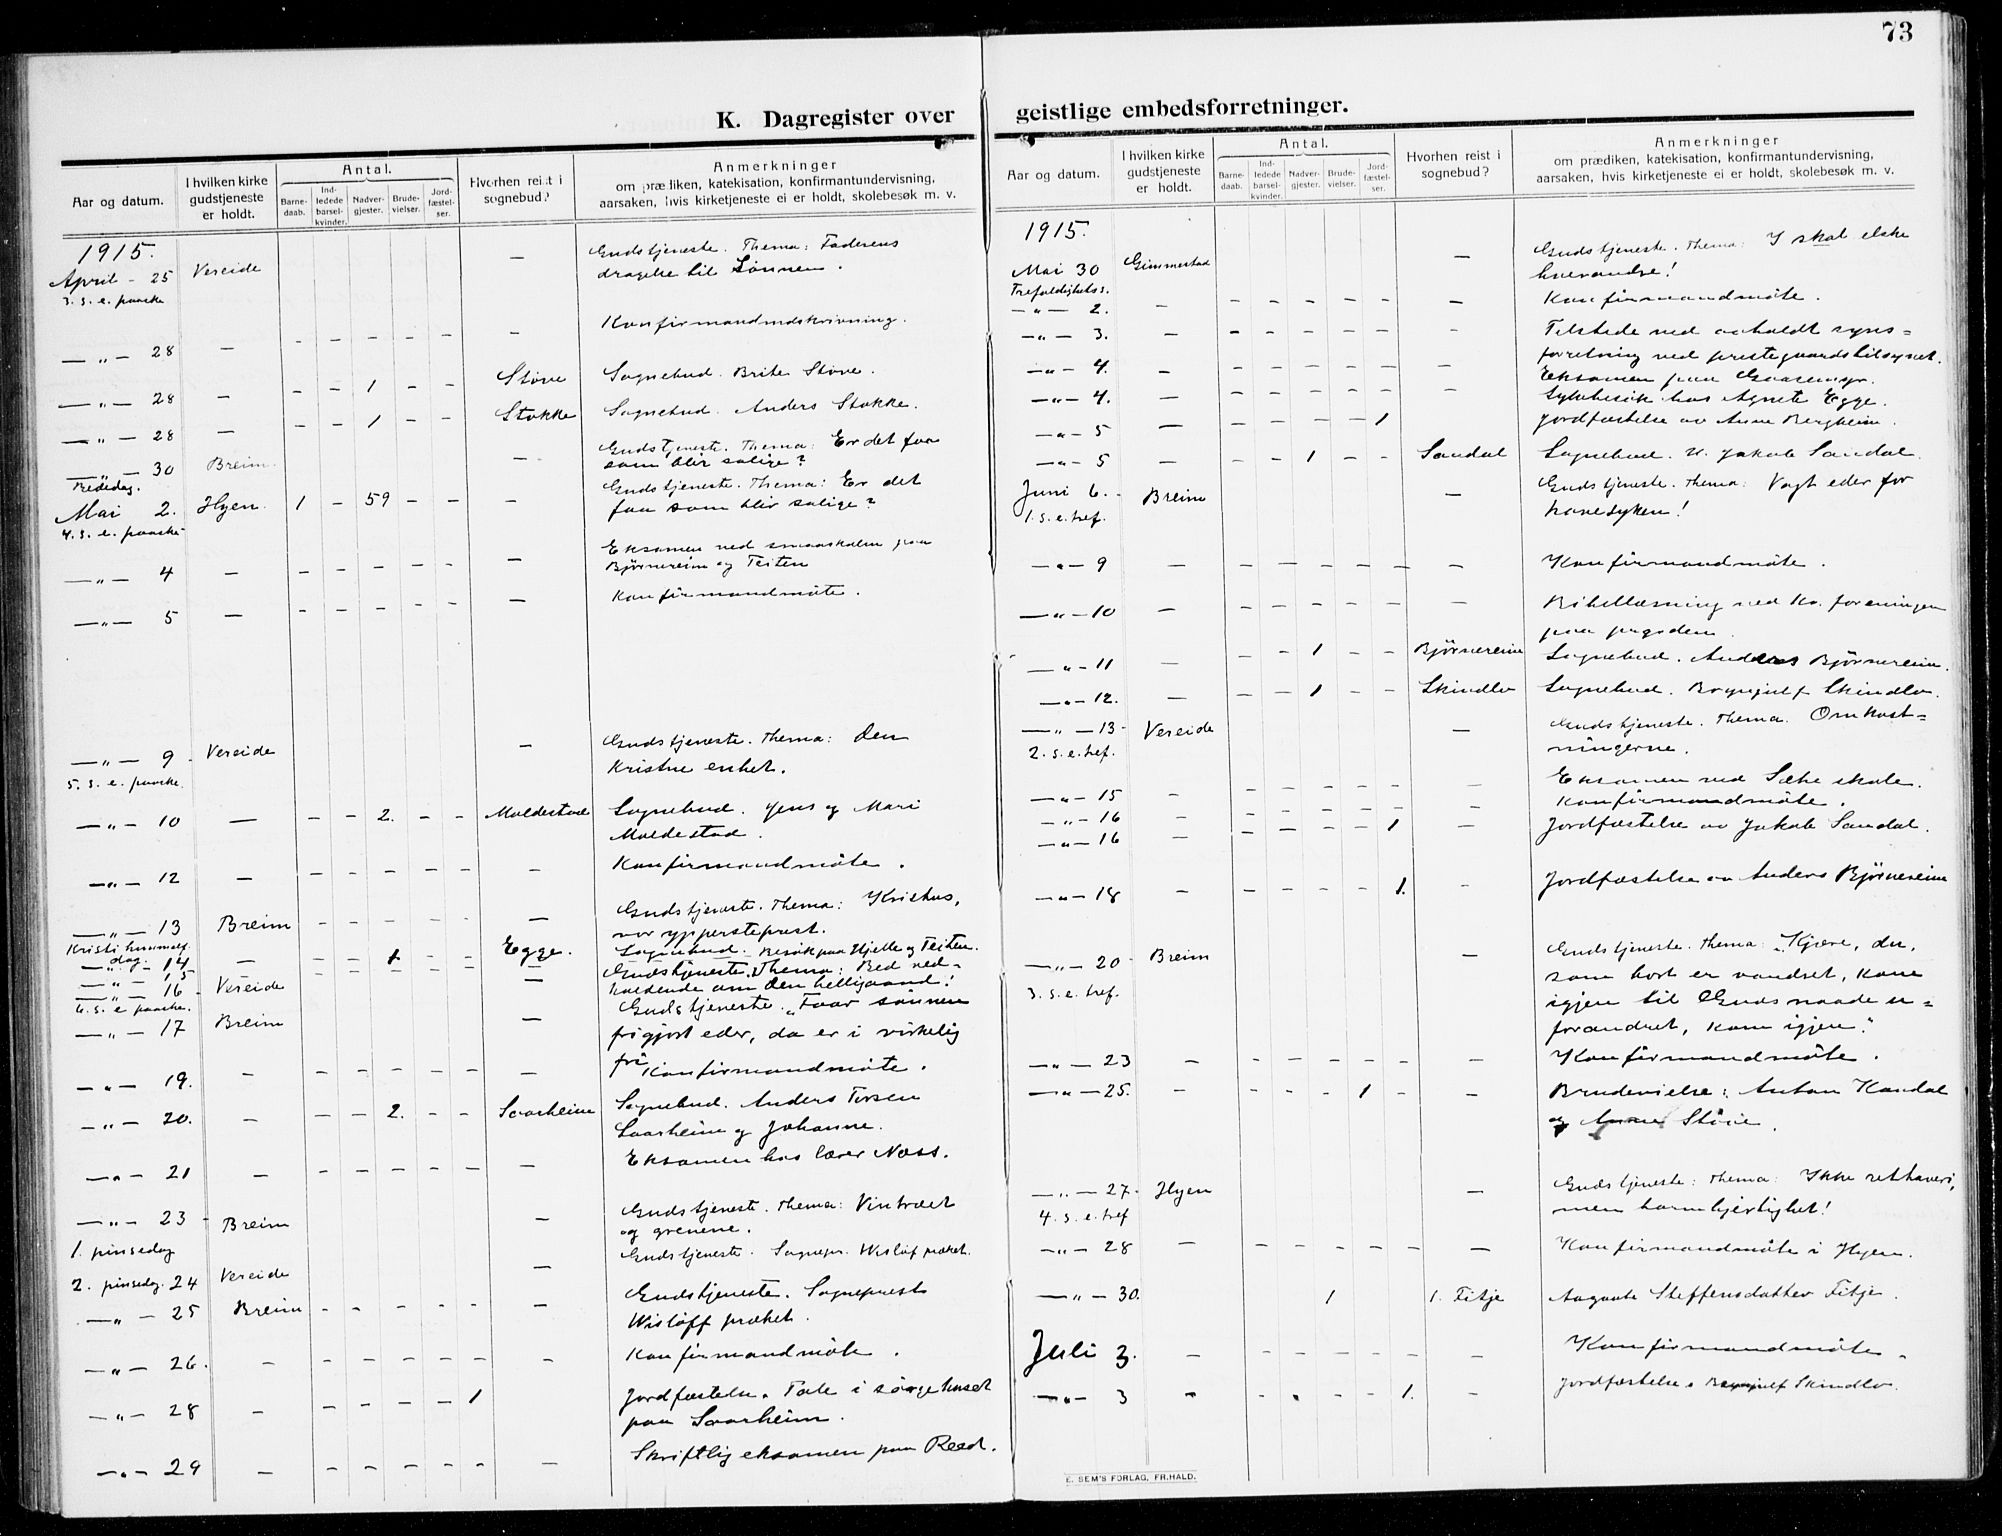 73
K. Dagregister over geistlige embedsforretninger.
Aar og datum.
I hvilken kirke gudstjeneste er holdt.
Antal.
Barnedaab.
Indledede barselkvinder.
Nadvergjester.
Brudevielser.
Jordfæstelser.
Hvorhen reist i sognebud?
Anmerkninger
om prædiken, katekisation, konfirmantundervisning,
aarsaken, hvis kirketjeneste ei er holdt, skolebesøk m. v.
1915.
April - 25 Vereide – Gudstjeneste. Thema: Faderens
3. s. e. paaske dragelse til Sønnen.
— „ — 28 – – – – – – – Konfirmandindskrivning.
— „ — 28 – – – 1 – – Støve Sognebud. Brite Støve.
— „ — 28 – – – 1 – – Stokke Sognebud. Anders Stokke.
— „ — 30 Breim – Gudstjeneste. Thema: Er det faa
Bededag. som blir salige?
Mai 2. Hyen. 1 – 59 – – – Gudstjeneste. Thema: Er det
4. s. e. paaske faa som blir salige?
— „ — 4 – – – – – – – Eksamen ved smaaskolen paa
Bjørnereim og Teiten
— „ — 5 – – – – – – – Konfirmandmøte.
— „ — 9 Vereide – Gudstjeneste. Thema: Den
5. s. e. paaske. Kristne enhet.
— „ — 10 – – – 2. – – Moldestad Sognebud. Jens og Mari
Moldestad.
— „ — 12 – – – – – – – Konfirmandmøte.
— „ — 13 Breim – – – – – – Gudstjeneste. Thema: Kristus,
Kristi himmelf. dag. vor ypperste prest.
— „ — 14 – – – 1 – – Egge. Sognebud. Besøk paa Hjelle og Teiten.
— „ — 15
— „ — 16 Vereide – Gudstjeneste. Thema: Bed ved-
6. s. e paaske. holdende om den helligaand!
— „ — 17 Breim – Gudstjeneste. „Faar sønnen
frigjort eder, da er i virkelig
fri
— „ — 19. – – – – – – – Konfirmandmøte.
— „ — 20. – – – 2. – – Saarheim Sognebud. Anders Torsen
Saarheim og Johanne.
— „ — 21 – – – – – – – Eksamen hos lærer Næss.
— „ — 23 Breim – Gudstjeneste. Thema: Vintræet
1. pinsedag og grenene.
2. pinsedag. 24 Vereide – Gudstjeneste. Sognepr. Wisløf præket.
— „ — 25 Breim – – – – – – Gudstjeneste. Sogneprest
Wisløff præket.
— „ — 26. – – – – – – – Konfirmandmøte.
— „ — 28 – – – – – 1 Jordfæstelse. Tale i sørgehuset
paa Saarheim.
— „ — 29 – – – – – – – Skriftlig eksamen paa Reed.
Aar og datum.
I hvilken kirke gudstjeneste er holdt.
Antal.
Barnedaab.
Indledede barselkvinder.
Nadvergjester.
Brudevielser.
Jordfæstelser.
Hvorhen reist i sognebud?
Anmerkninger
om prædiken, katekisation, konfirmantundervisning,
aarsaken, hvis kirketjeneste ei er holdt, skolebesøk m. v.
1915.
Mai 30 Gimmestad – Gudstjeneste. Thema: I skal elske
Trefoldighetss. hverandre!
— „ — 2. – – – – – – – Konfirmandmøte.
— „ — 3. – – – – – – – Tilstede ved avholdt syns=
forretning ved prestegaardstilsynet.
— „ — 4. – – – – – – – Eksamen paa Gaasemyr.
— „ — 4. – – – – – – – Sykebesøk hos Agnete Egge.
— „ — 5 – – – – – 1 Jordfæstelse av Anne Bergheim.
— „ — 5 – – – 1 – – Sandal Sognebud. Jakob Sandal.
Juni 6. Breim – Gudstjeneste. Thema: Vogt eder for
1. s. e. tref. havesyken!
— „ — 9 – – – – – – – Konfirmandmøte.
— „ — 10 – – – – – – – Bibellæsning ved kv. foreningen
paa prgaarden.
— „ — 11 – – – 1 – – Bjørnereim Sognebud. Anders Bjørnereim.
— „ — 12. – – – 1 – – Skindlo Sognebud. Brynjulf Skindlo.
— „ — 13 Vereide – Gudstjeneste. Thema. Omkost=
2. s. e. tref. ningerne.
— „ — 15 – – – – – – – Eksamen ved Sæke skole.
— „ — 16 – – – – – – – Konfirmandmøte.
— „ — 16 – – – – – 1 – Jordfæstelse av Jakob Sandal.
— „ — 18 – – – – – 1. – Jordfæstelse av Anders Bjørnereim
— „ — 20 Breim – Gudstjeneste. Thema: „Kjære, du,
3. s. e. tref. som bort er vandret, kom
igjen til Guds naade u=
forandret, kom igjen."
— „ — 23 – – – – – – – Konfirmandmøte.
— „ — 25. – – – – 1 – – Brudevielse: Anton Kandal
og Anne Støve.
— „ — 27. Hyen – Gudstjeneste: Thema: Ikke rethaveri,
4. s. e. tref men barmhjertighet!
— „ — 28 – – – – – – – Konfirmandmøte i Hyen.
— „ — 30. 1 1. Fitje Aagaate Steffensdatter Fitje.
Juli 3. – – – – – – – Konfirmandmøte.
— „ — 3 – – 1. – Jordfæstelse. Brynjulf Skindlo.
E. SEM'S FORLAG, FR.HALD.